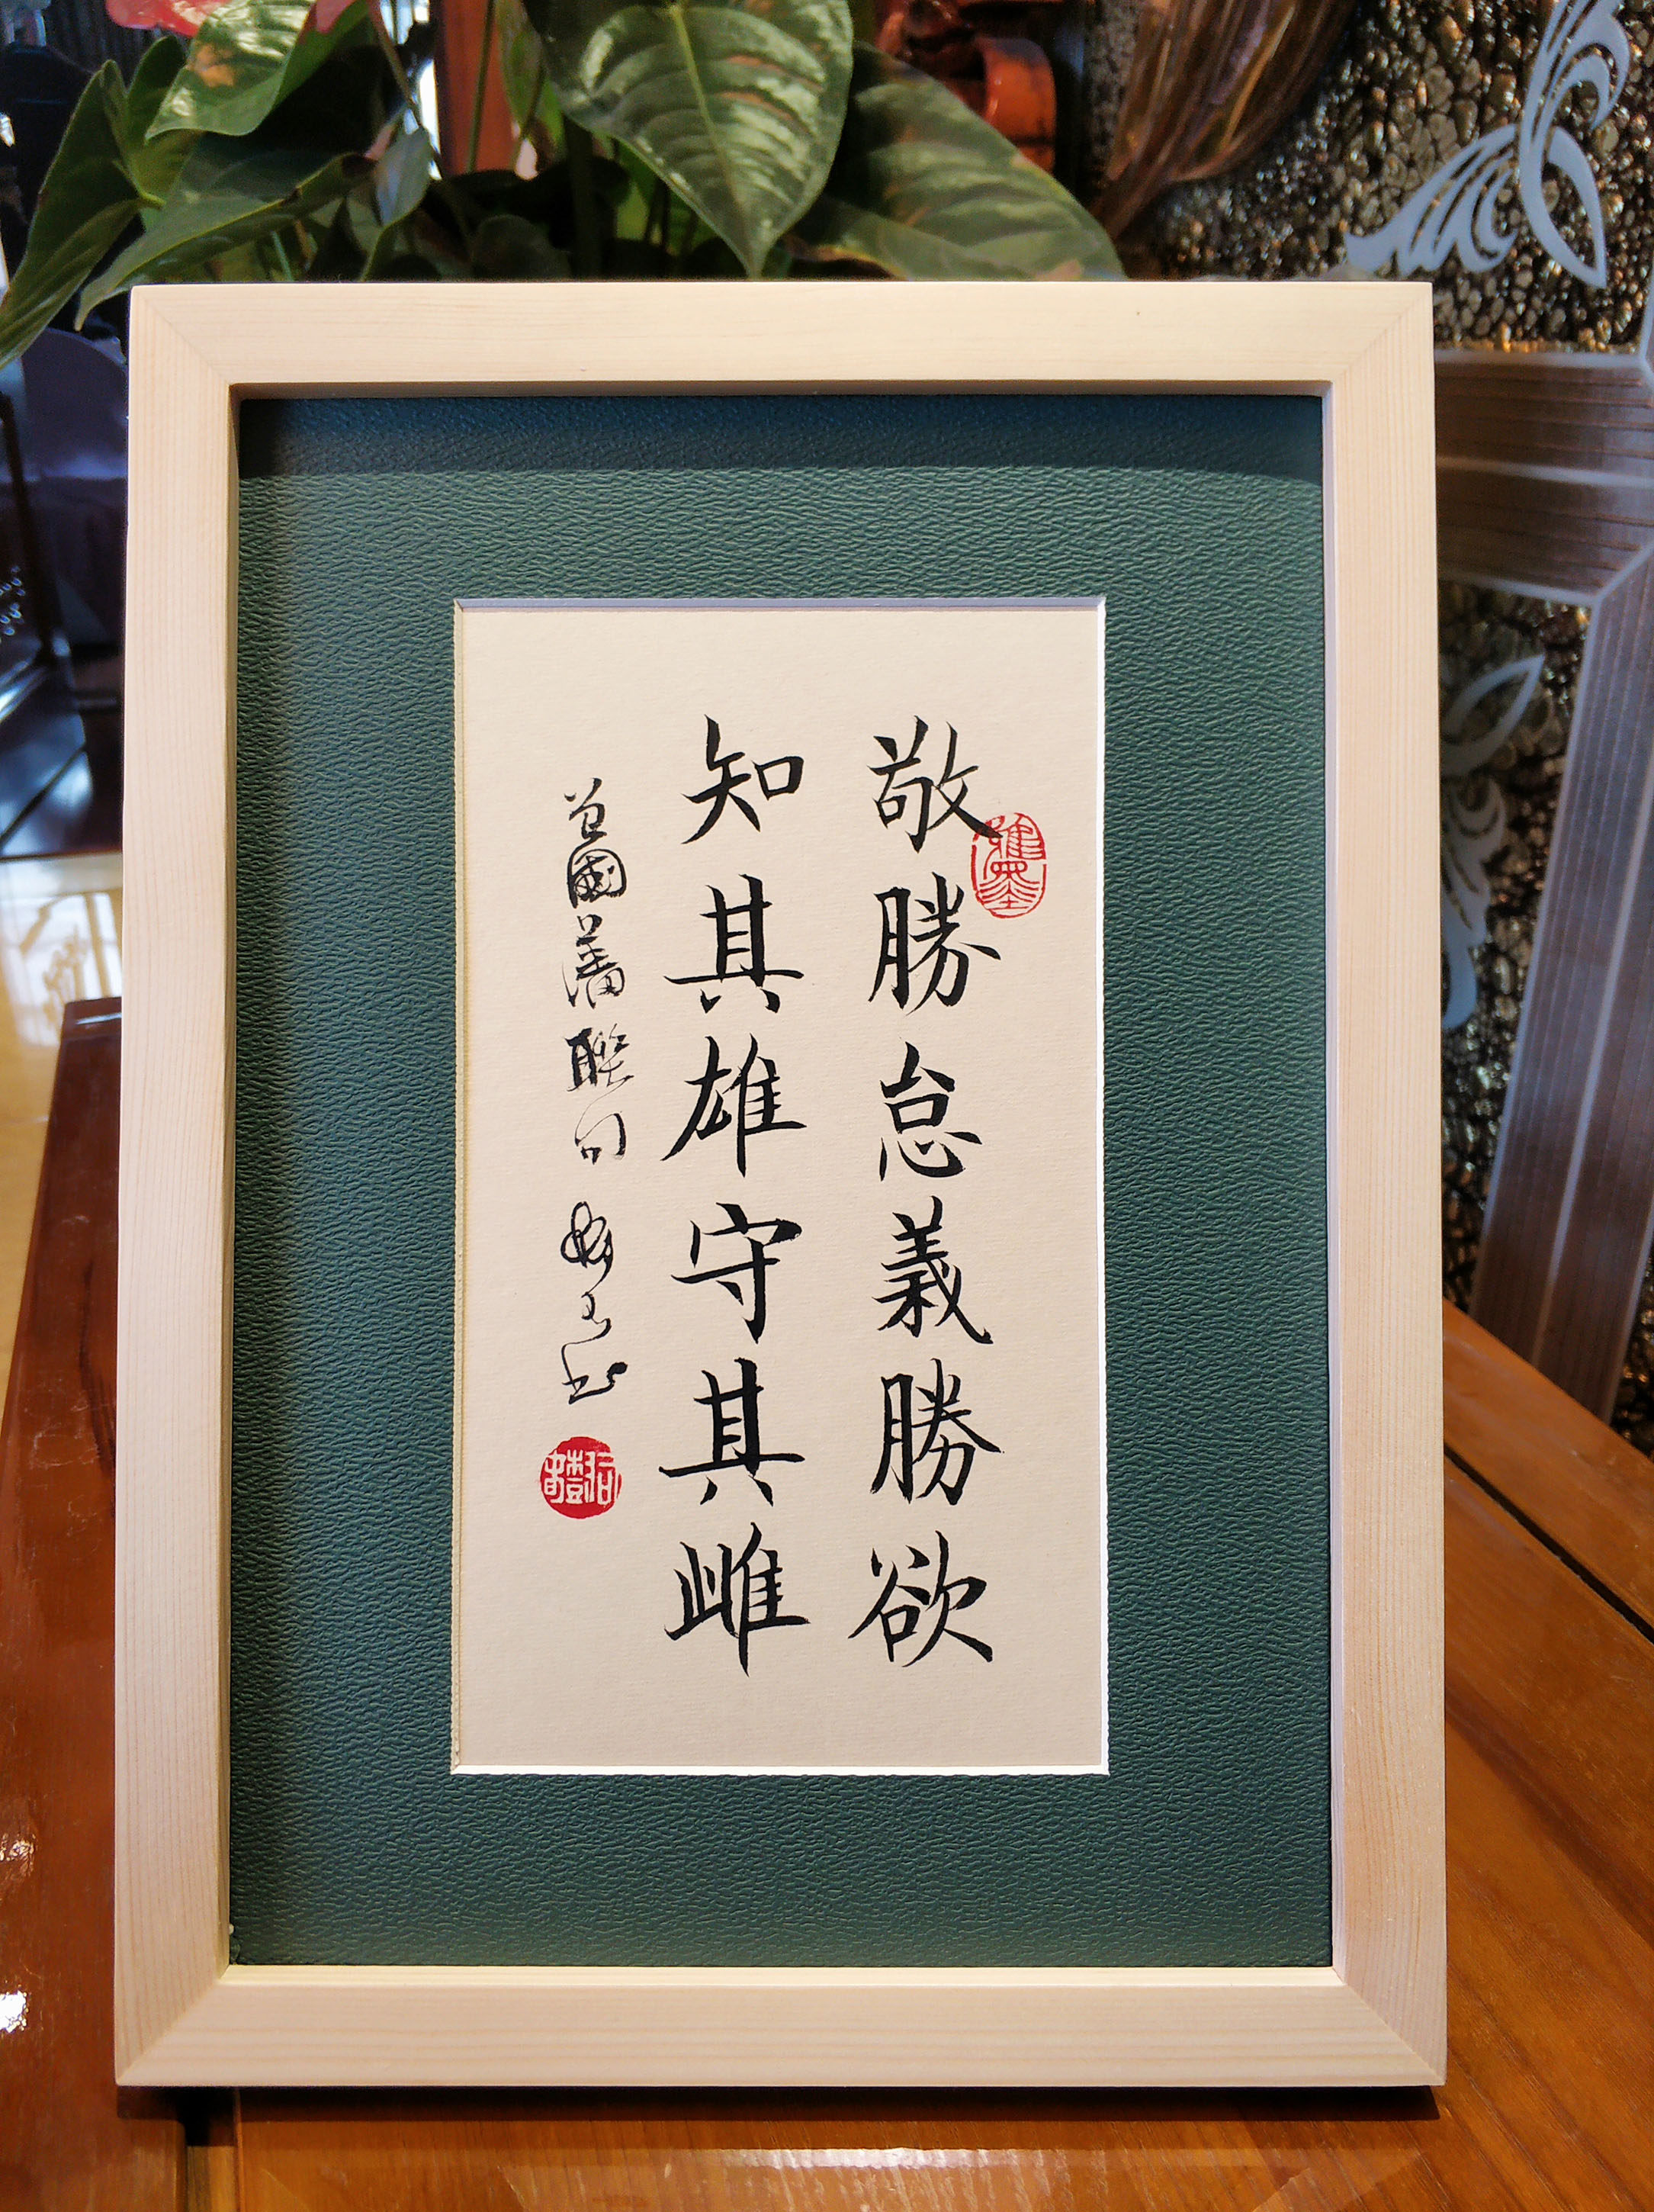 敬勝怠義勝欲
知其雄守其雌
曾國藩聯句